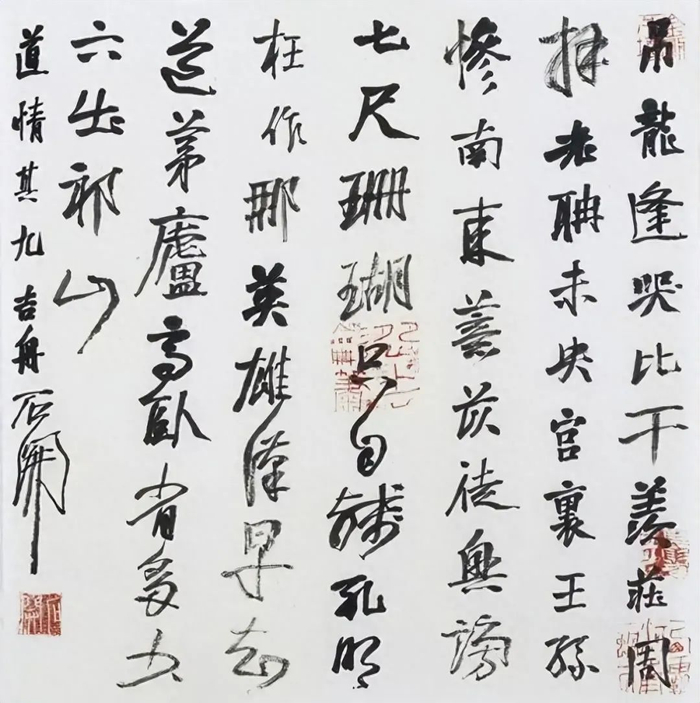 吊龍逢哭比干羨莊周
拜老聃未央宮裏王孫
慘南來薏苡徒興謗
七尺珊瑚只自殘孔明
枉作那英雄漢早知
道茅廬高臥省多少
六出祁山
道情其九吉舟石開